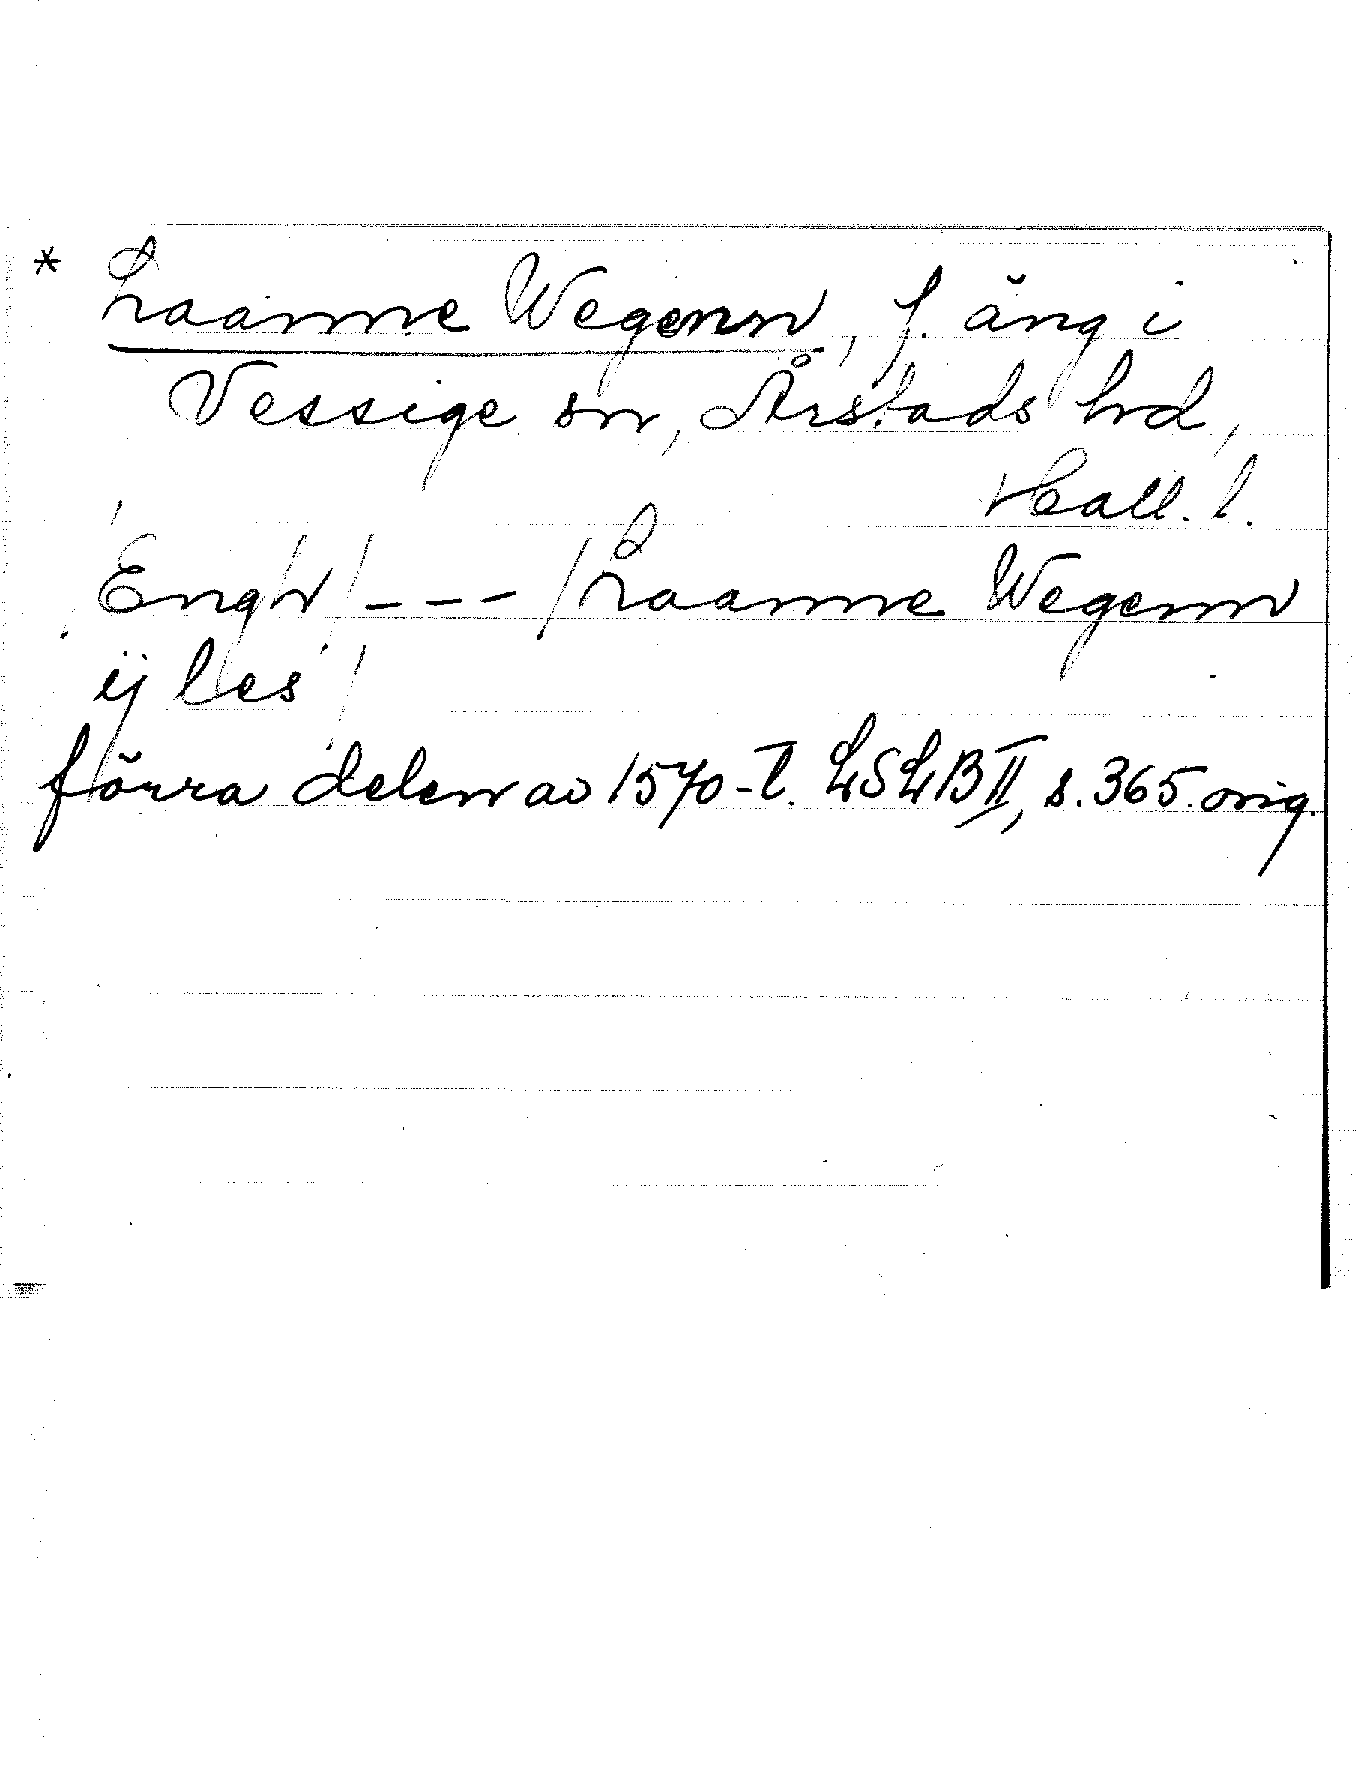 * Laanne Wegenn, f. äng i
Vessige sn, Årstads hd,
Hall. l.
Engh /---/ Laanne Wegenn
ij les /
förra delen av 1570-t. LSLB II, s. 365. orig.